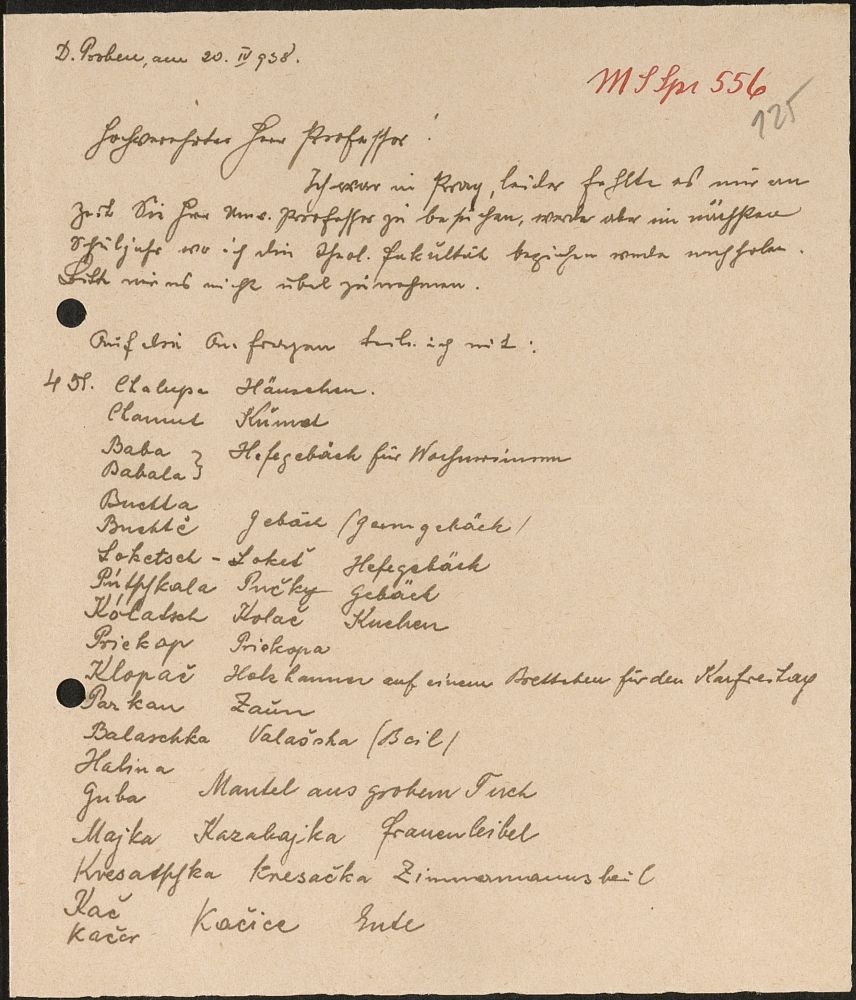 D. Proben, am 20. IV 938.
M S Spr 556
125
Hochverehrter Herr Professor!
Ich war in Prag, leider fehlte es mir an
Zeit Sie Herr Univ. Professor zu besuchen, werde aber im nächsten
Schuljahr wo ich die Theol. Fakultät beziehen werde nachholen.
Bitte mir es nicht übel zu nehmen.
Auf die Anfragen teile ich mit:
451. Chalupe Häuschen.
Chamut Kümet
Baba } Hefegebäck für Wöchnerinnen
Babala }
Buchta
Buchtě Gebäck (Germgebäck)
Loketsch - Lokeš Hefegebäck
Putschkala Pučky Gebäck
Kólatsch Kolač Kuchen
Priekop Priekopa
Klopač Holzhammer auf einem Brettchen für den Karfreitag
Parkan Zaun
Balaschka Valaška (Beil)
Halina
Guba Mantel aus grobem Tuch
Majka Kazabajka Frauenleibel
Kresatschka Kresačka Zimmermannsbeil
Kač
Kačer Kačice Ente